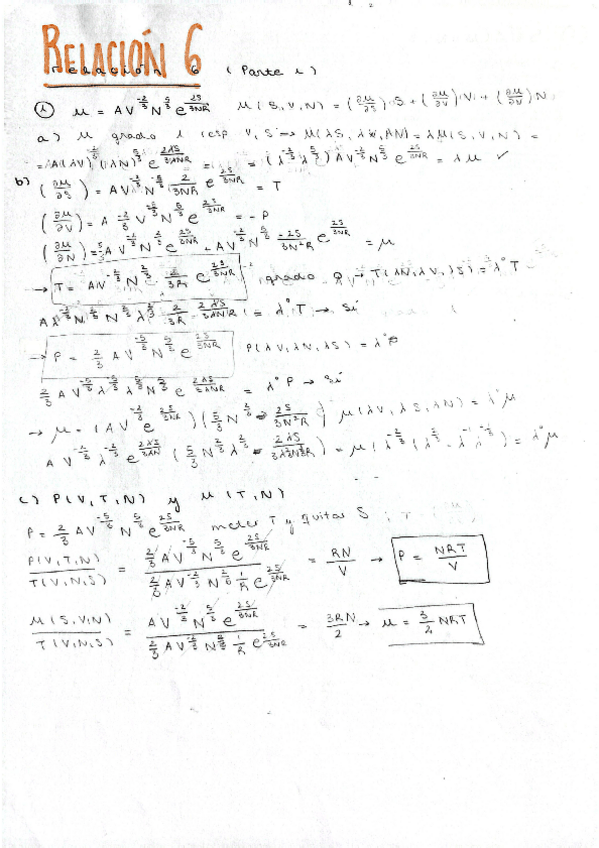 RELACIÓN 6
relación 6 (Parte 1)
① u = A V^{-2/3} N^{5/3} e^{2S/3NR}   u(S,V,N) = (∂u/∂S)·S + (∂u/∂V)·V + (∂u/∂N)N
a) u grado 1 resp V, S → u(λS, λV, λN) = λu(S,V,N) =
= A(λV)^{-2/3}(λN)^{5/3} e^{2λS/3λNR} = (λ^{-2/3} λ^{5/3}) A V^{-2/3} N^{5/3} e^{2S/3NR} = λu ✓
b) (∂u/∂S) = A V^{-2/3} N^{5/3} 2/3NR e^{2S/3NR} = T
(∂u/∂V) = A -2/3 V^{-5/3} N^{5/3} e^{2S/3NR} = -P
(∂u/∂N) = 5/3 A V^{-2/3} N^{2/3} e^{2S/3NR} + A V^{-2/3} N^{5/3} -2S/3N²R e^{2S/3NR} = u
→ T = A V^{-2/3} N^{2/3} 2/3R e^{2S/3NR}   grado 0 → T(λN, λV, λS) = λ°T
A λ^{-2/3} V^{-2/3} N^{2/3} λ^{2/3} 2/3R e^{2λS/3λNR} = λ°T → Sí
→ P = 2/3 A V^{-5/3} N^{5/3} e^{2S/3NR}   P(λV, λN, λS) = λ°P
2/3 A V^{-5/3} λ^{-5/3} λ^{5/3} N^{5/3} e^{2λS/3λNR} = λ°P → Sí
→ u = (A V^{-2/3} e^{2S/3NR}) (5/3 N^{2/3} - 2S/3N²R)   u(λV, λS, λN) = λ°u
A V^{-2/3} λ^{-2/3} e^{2λS/3λN} (5/3 N^{2/3} λ^{2/3} - 2λS/3λ²N²R) = u(λ^{-2/3}(λ^{2/3} - λ^{-1} λ^{-2/3}) = λ°u
c) P(V,T,N) y u(T,N)
P = 2/3 A V^{-5/3} N^{5/3} e^{2S/3NR}   meter T y quitar S
P(V,T,N)/T(V,N,S) = 2/3 A V^{-5/3} N^{5/3} e^{2S/3NR} / 2/3 A V^{-2/3} N^{2/3} 1/R e^{2S/3NR} = RN/V → P = NRT/V
u(S,V,N)/T(V,N,S) = A V^{-2/3} N^{5/3} e^{2S/3NR} / 2/3 A V^{-2/3} N^{2/3} 1/R e^{2S/3NR} = 3RN/2 → u = 3/2 NRT